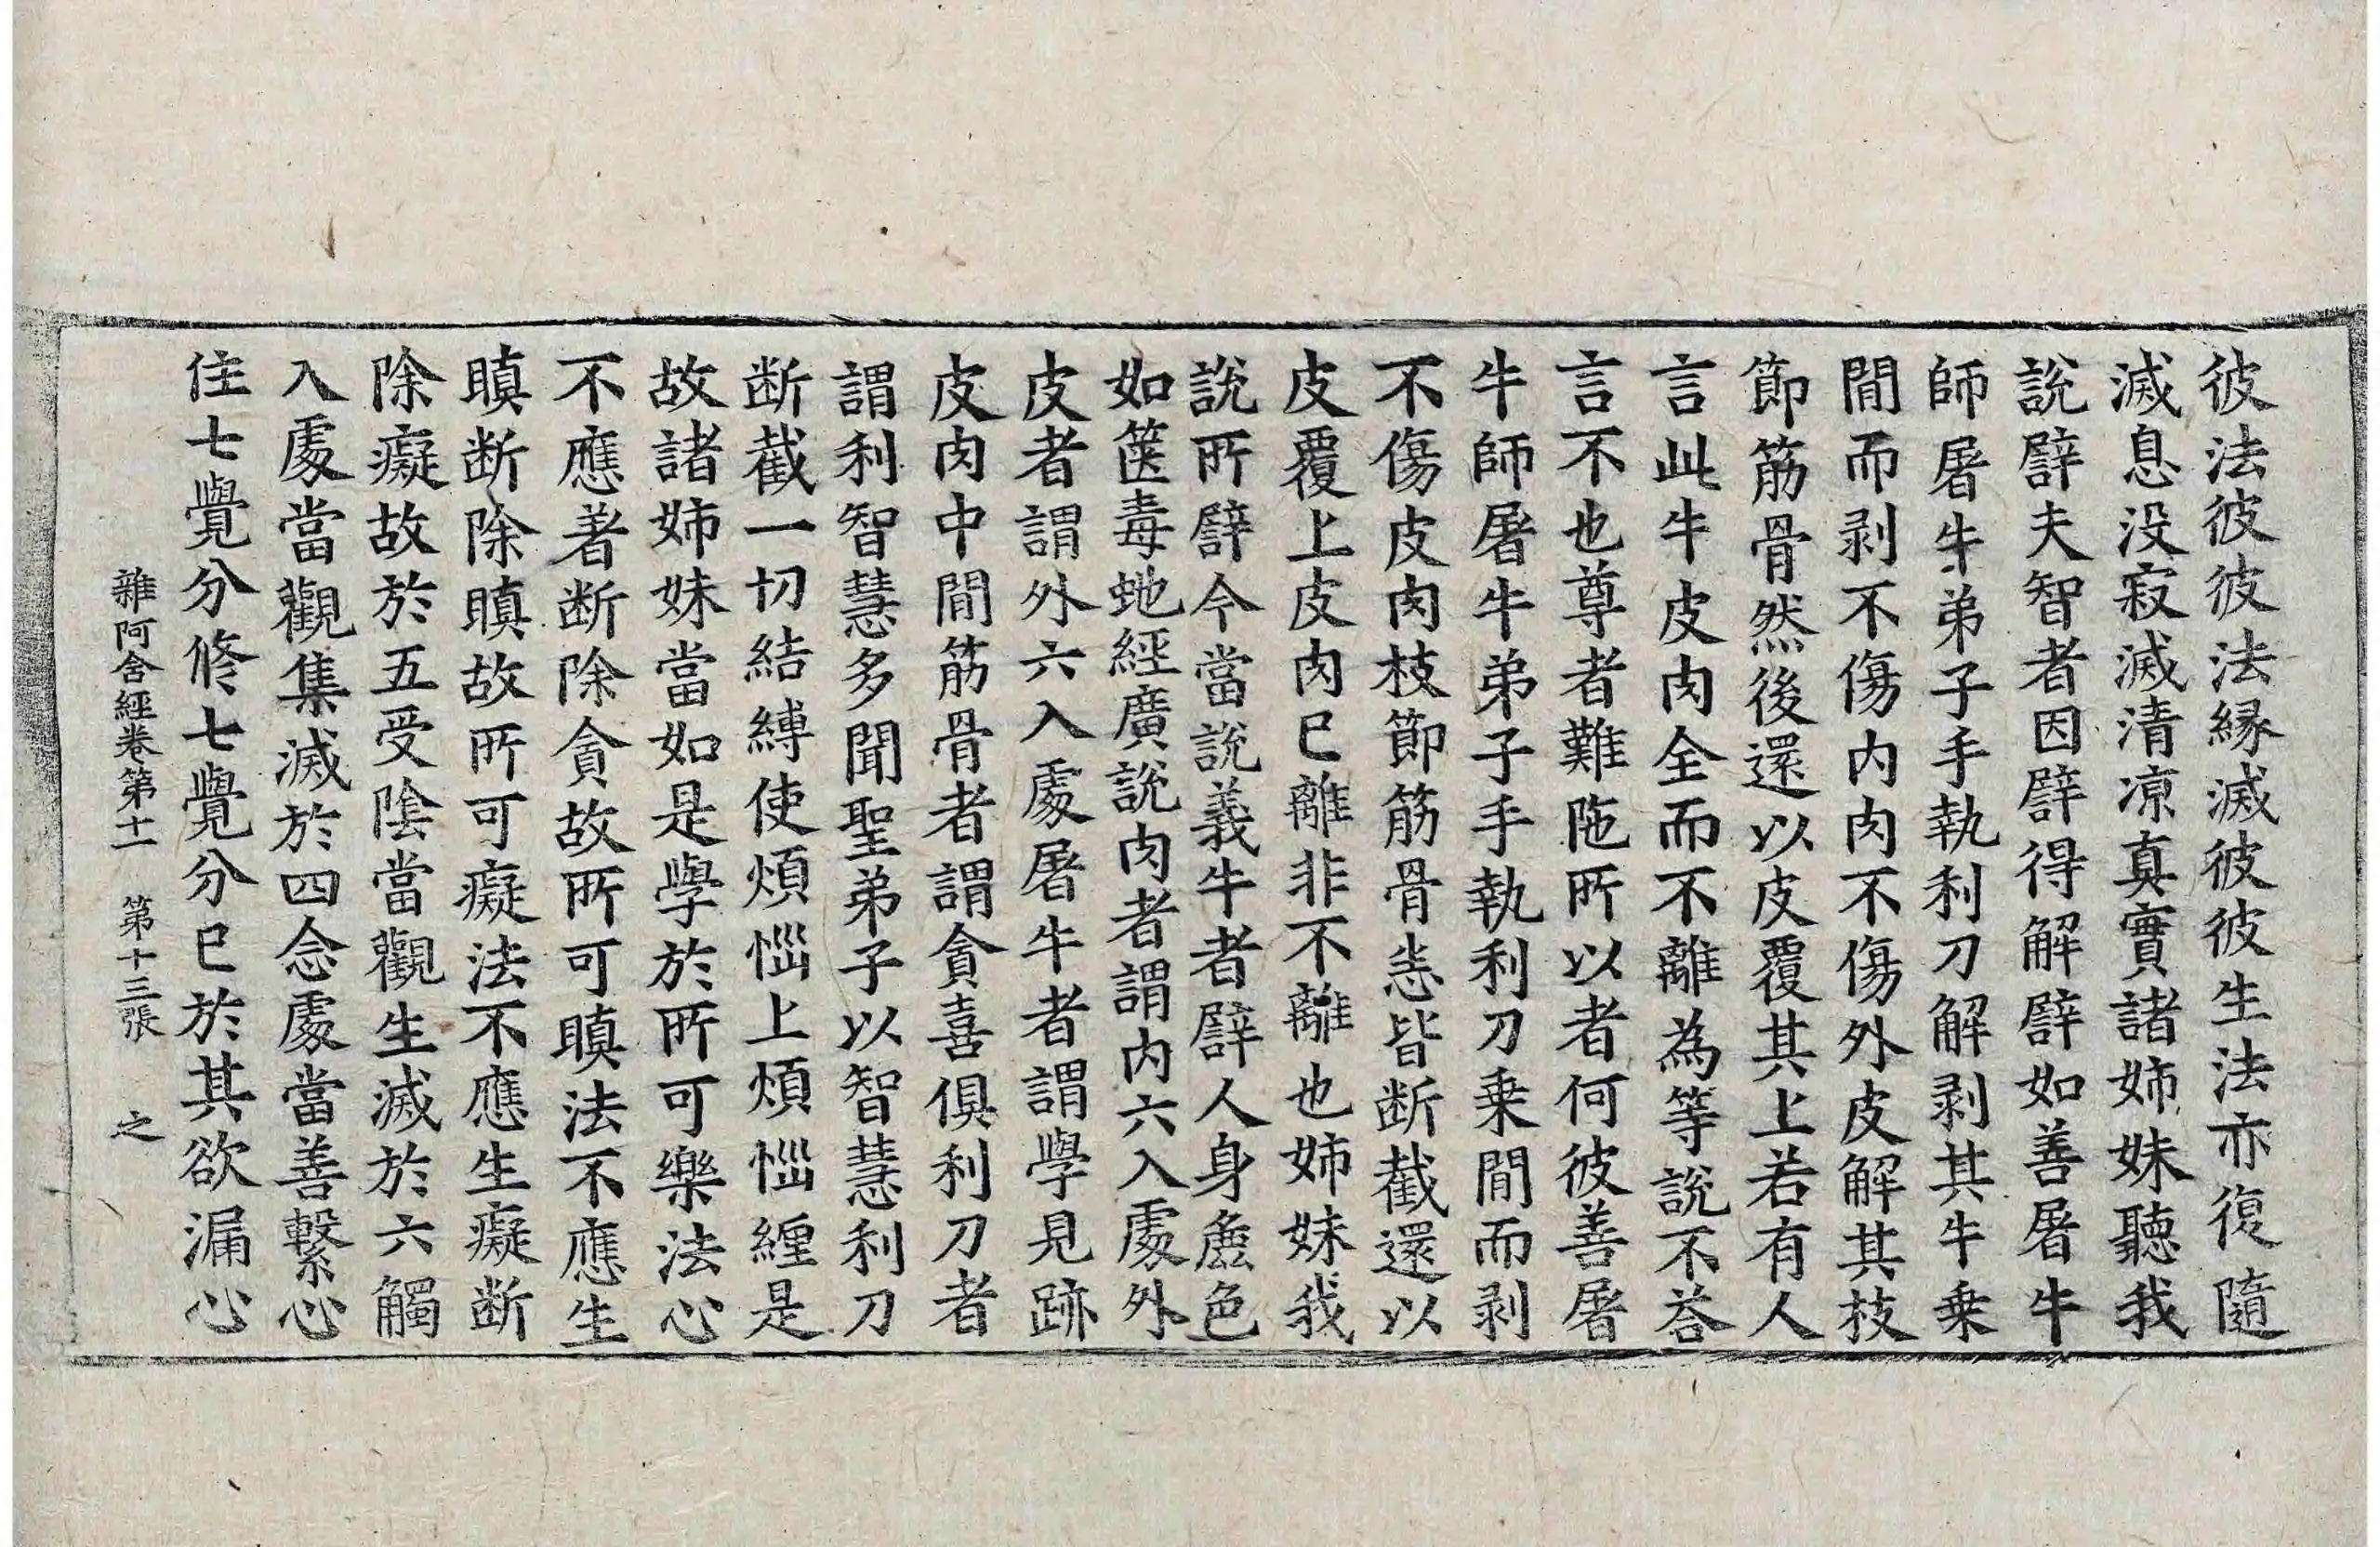 彼法彼彼法縁滅彼彼生法亦復隨
滅息没寂滅清凉真實諸姉妹聽我
說譬夫智者因譬得解譬如善屠牛
師屠牛弟子手執利刀解剥其牛乗
間而剥不傷内肉不傷外皮解其枝
節筋骨然後還以皮覆其上若有人
言此牛皮肉全而不離為等說不荅
言不也尊者難陁所以者何彼善屠
牛師屠牛弟子手執利刀乗間而剥
不傷皮肉枝節筋骨悉皆断截還以
皮覆上皮肉已離非不離也姉妹我
說所譬今當說義牛者譬人身麁色
如篋毒虵經廣說肉者謂内六入處外
皮者謂外六入處屠牛者謂學見跡
皮肉中間筋骨者謂貪喜俱利刀者
謂利智慧多聞聖弟子以智慧利刀
断截一切結縛使煩惱上煩惱纏是
故諸姉妹當如是學於所可樂法心
不應著断除貪故所可瞋法不應生
瞋断除瞋故所可癡法不應生癡断
除癡故於五受陰當觀生滅於六觸
入處當觀集滅於四念處當善繫心
住七覺分修七覺分已於其欲漏心
雜阿含經卷第十一 第十三張 之